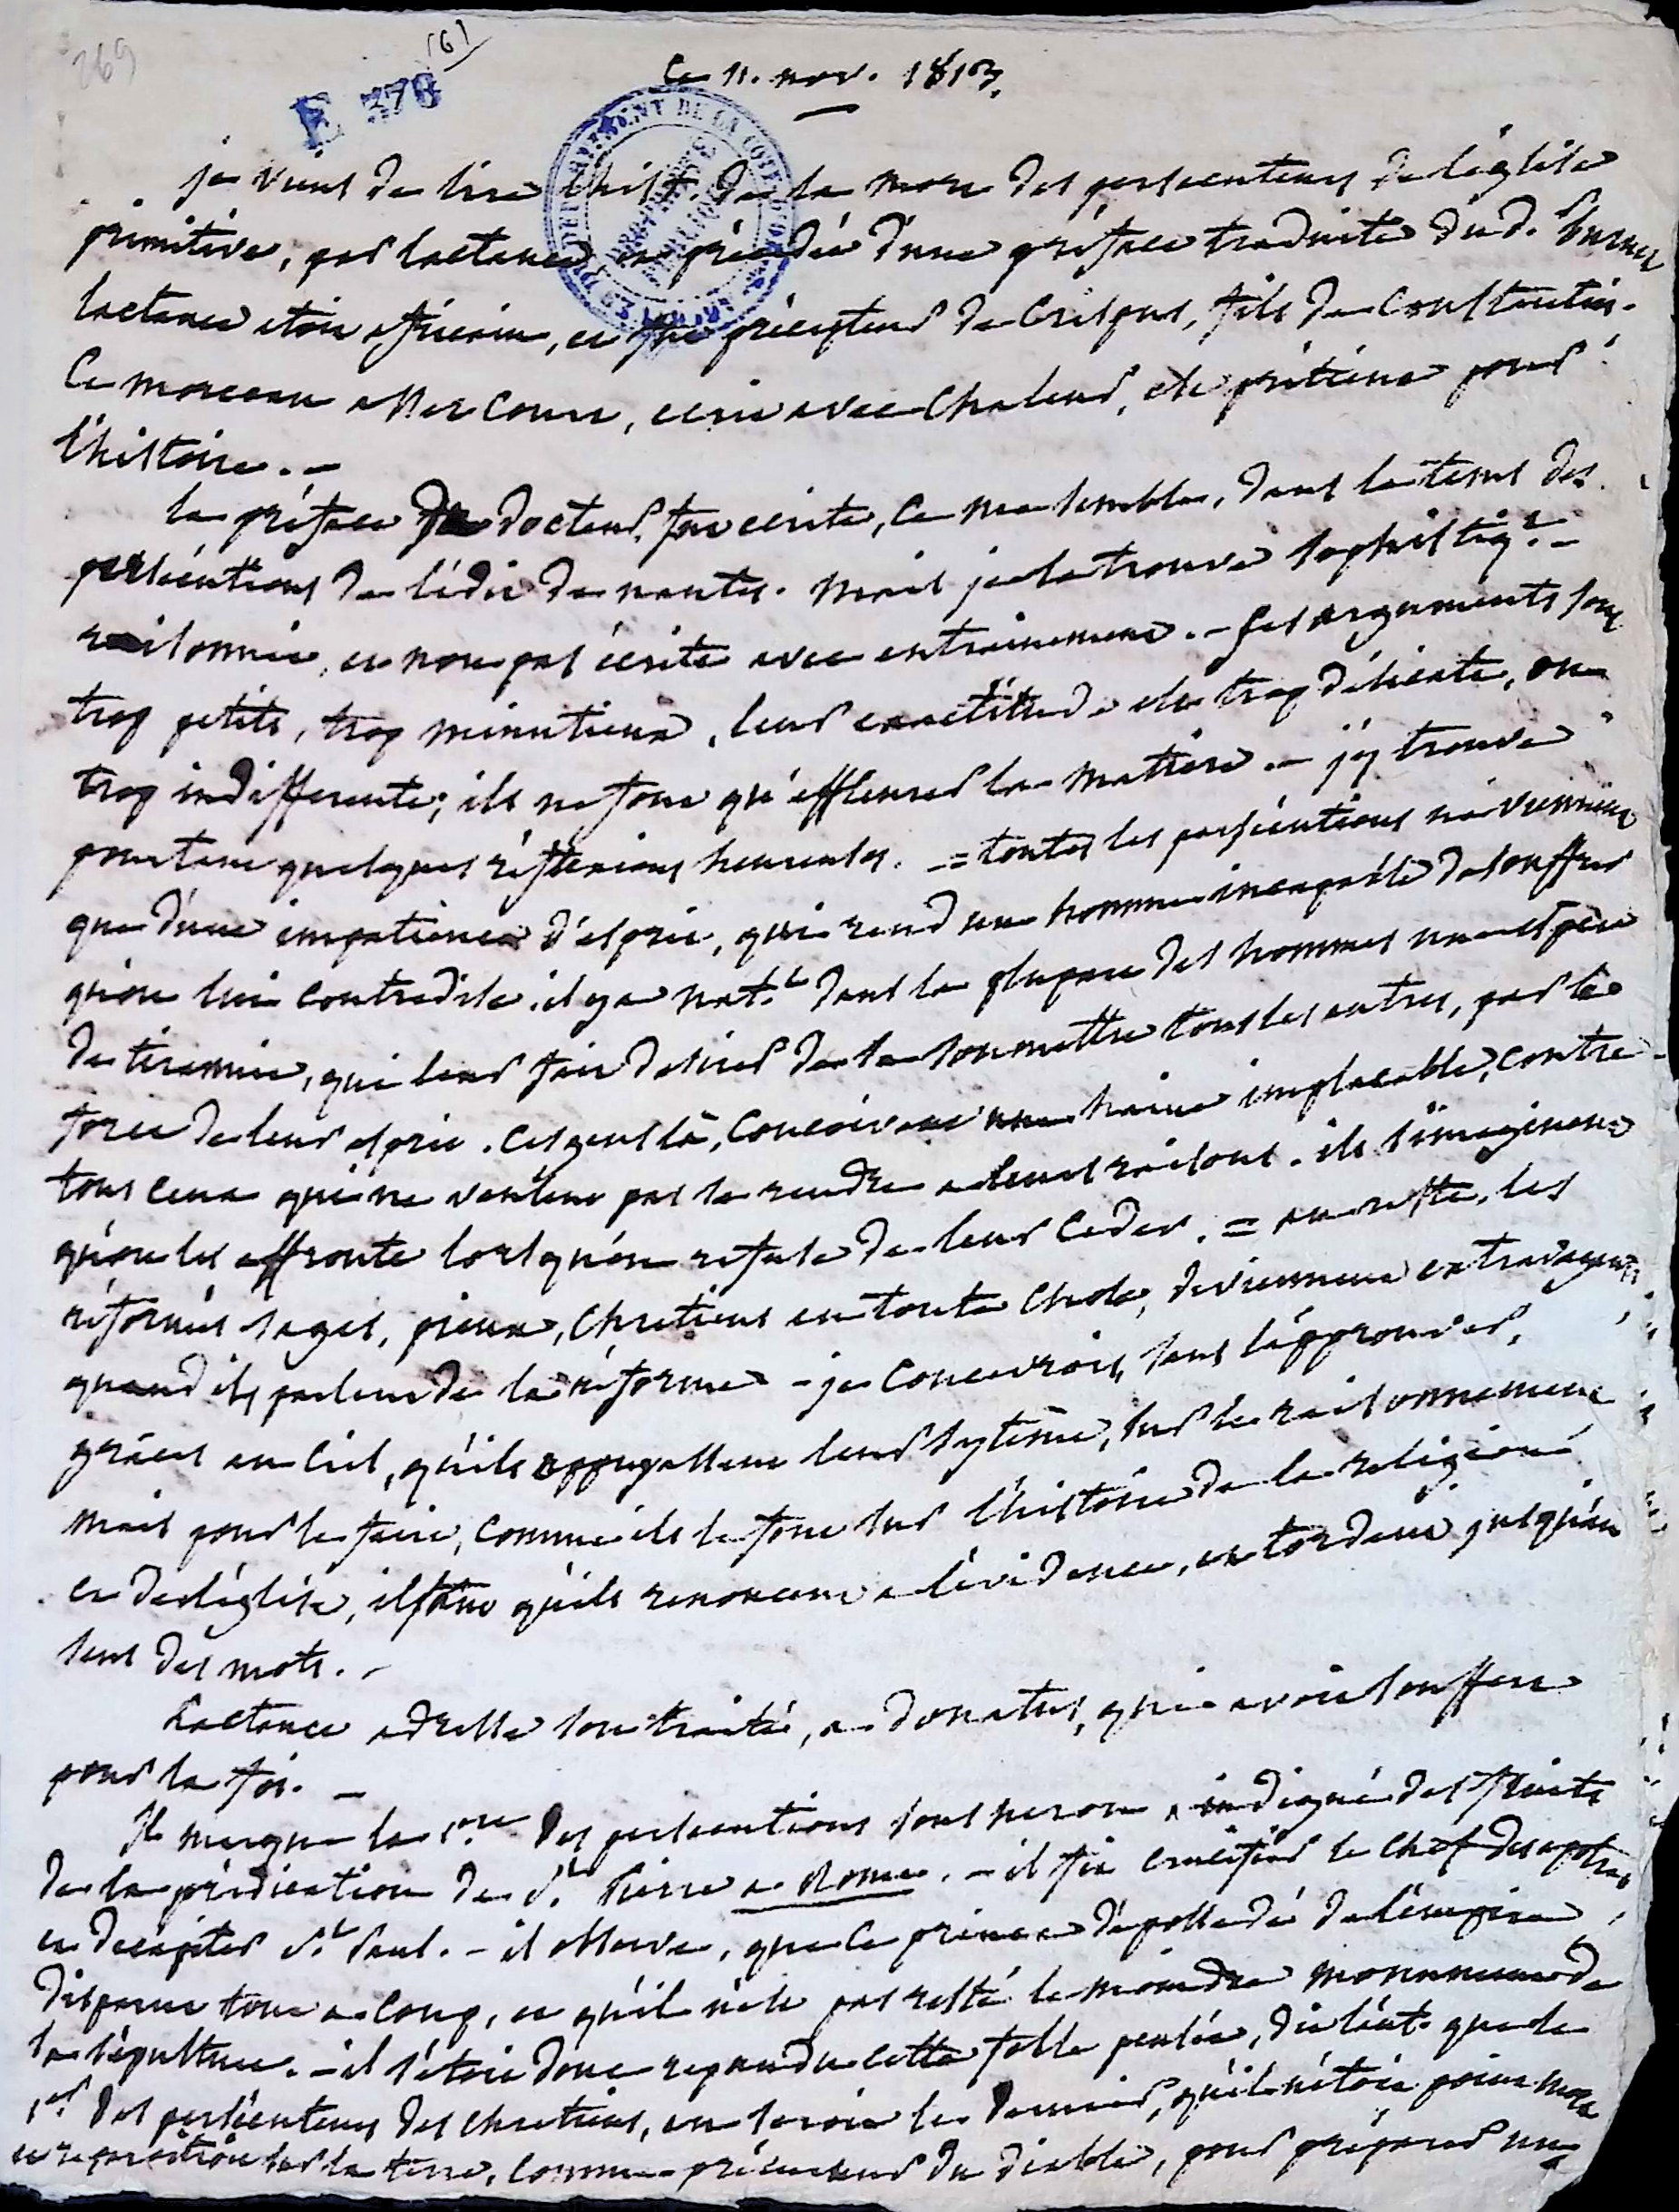 269
(6)
E 378
Ce 11. nov. 1813.
je viens de lire l'hist. de la mort des persécuteurs de l'église
primitive, par lactance, et précédée d'une préface traduite du d.r burnet
lactance etoit africain, et fut précepteur de Crispus, fils de Constantin.
Ce morceau assez court, ecrit avec chaleur, est prétieux pour
l'histoire. -
la préface du docteur, fut ecrite, ce me semble, dans le tems des
persécutions de l'édit de nantes. Mais je la trouve sophistiq.e -
raisonnée, et non pas écrite avec entrainement. - Ses arguments sont
trop petits, trop minutieux, leur exactitude est trop délicate, ou
trop indifferente; ils ne font qu'effleurer la matière. - j'y trouve
pourtant quelques réflexions heureuses. = toutes les persécutions ne viennent
que d'une impatience d'esprit, qui rend un homme incapable de souffrir
qu'on lui contredise. il y a nat.t dans la plupart des hommes une espèce
de tirannie, qui leur fait desirer de se soumettre tous les autres, par la
force de leur esprit. Ces gens là, conçoivent une haine implacable, contre
tous ceux qui ne veulent pas se rendre a leurs raisons. ils s'imaginent
qu'on les affronte lorsqu'on refuse de leur ceder. = au reste, les
réformés sages, pieux, chretiens en toute chose, deviennent extravagants
quand ils parlent de la réforme - je concevrois, sans l'éprouver,
graces au ciel, qu'ils appuyassent leur sytême, sur le raisonnement
mais pour le faire, comme ils le font sur l'histoire de la religion
et de l'église, il faut qu'ils renoncent a l'évidence, et tordent jusqu'au
sens des mots. -
Lactance adresse son traité, a donatus, qui avoit souffert
pour la foi. -
Il marque la 1.ere des persécutions sous neron, indigné des fruits
de la prédication de s.t Pierre a Rome. - il fit crucifier le chef des apotres,
et decapiter s.t Paul. - il observe, que ce prince dépossedé de l'empire,
disparut tout a coup, et qu'il n'est pas resté le moindre monument de
sa sépulture. - il s'etoit donc repandu cette folle pensée, dit l'aut. que le
1.er des persécuteurs des chretiens, en seroit le dernier, qu'il n'étoit point mort
et reparoitroit sur la terre, comme précurseur du diable, pour préparer une